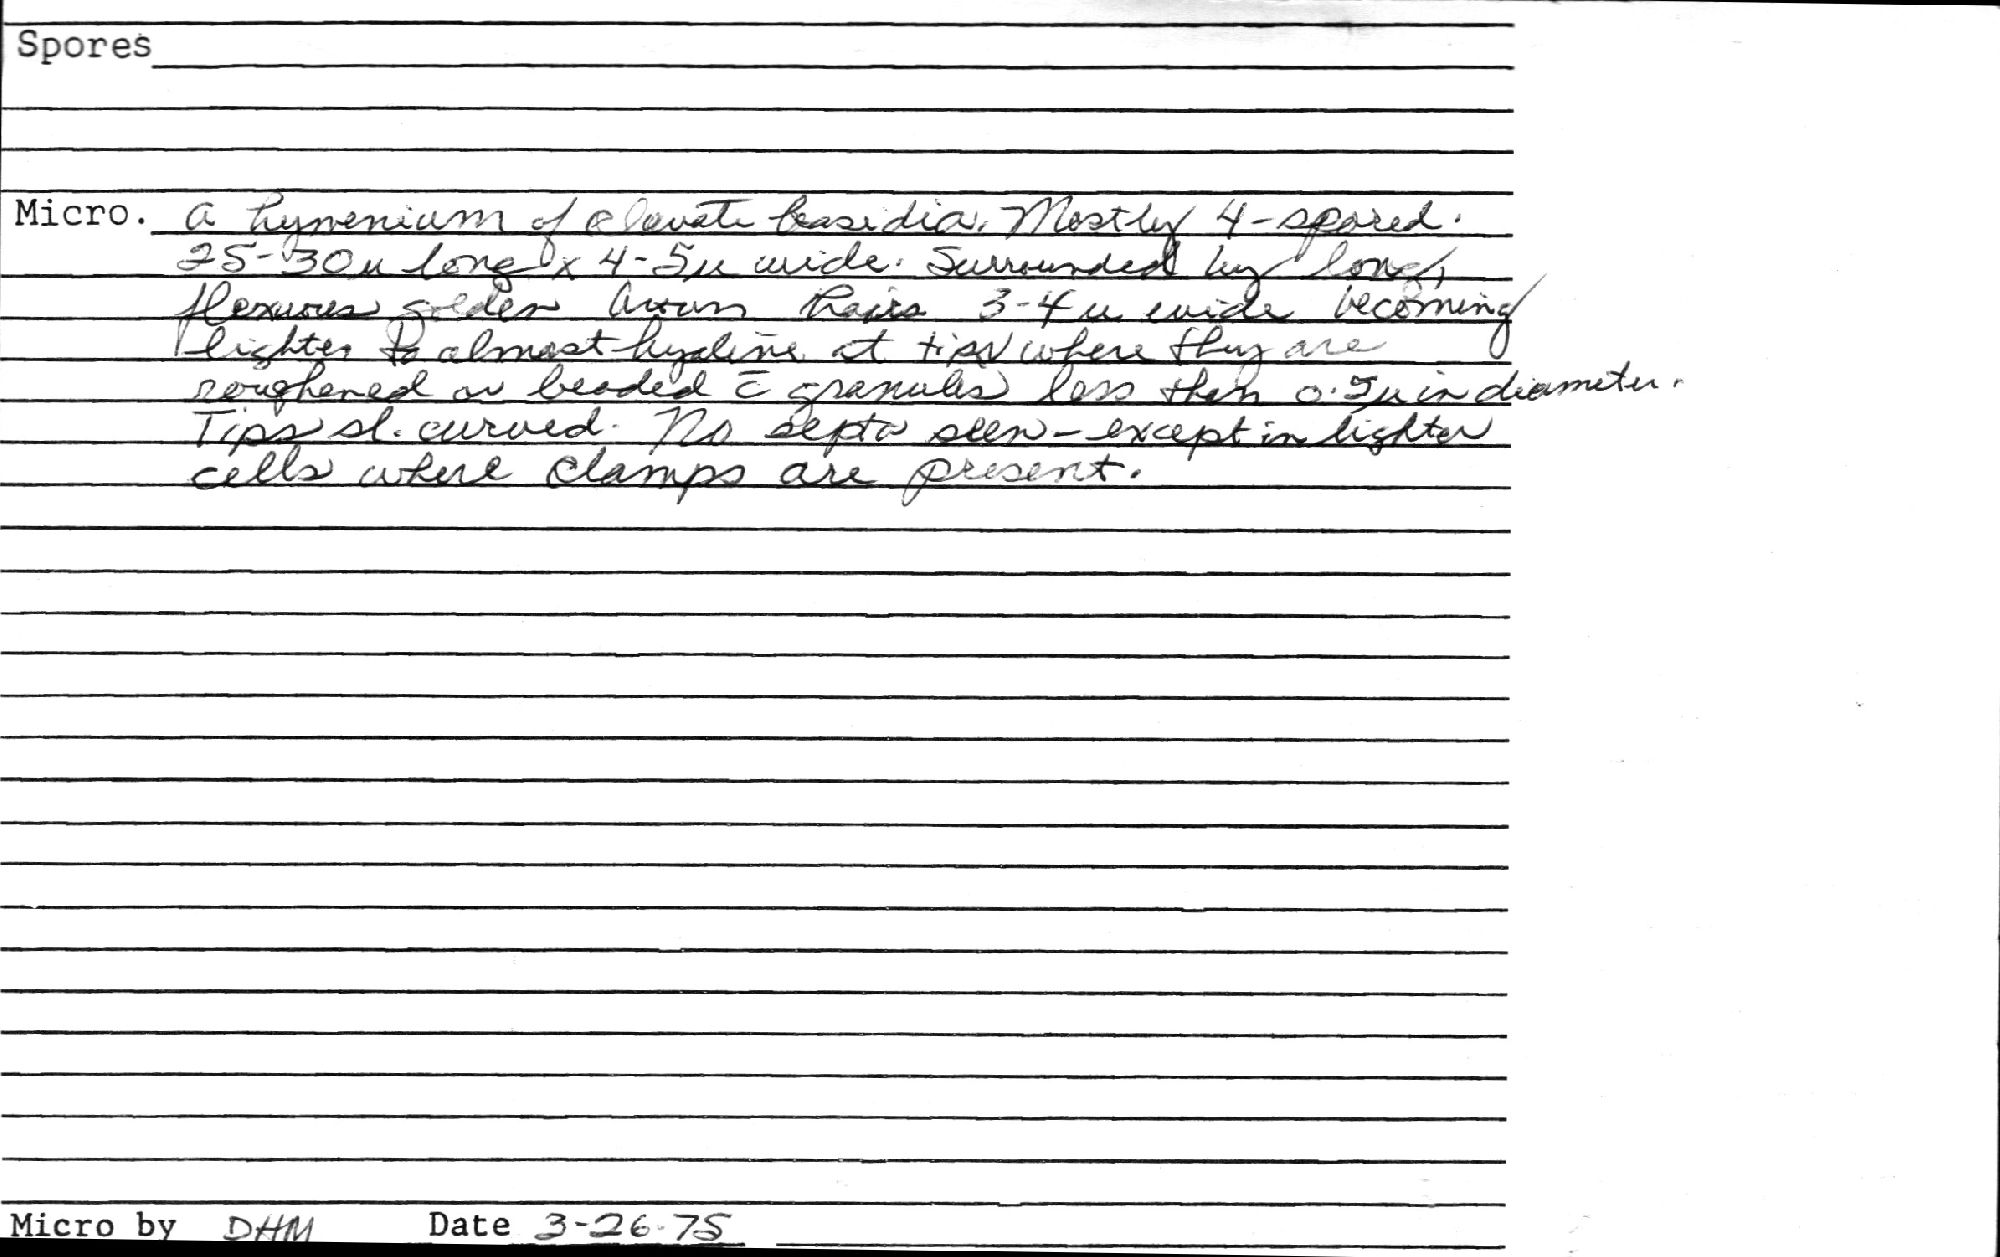 Spores
Micro. A hymenium of clavate basidia. Mostly 4-spored.
25-30u long x 4-5u wide. Surrounded by long,
flexuous golden brown hairs 3-4u wide becoming
lighter to almost hyaline at tips where they are
roughened or beaded c̄ granules less then 0.5u in diameter.
Tips sl. curved. No septa seen - except in lighter
cells where clamps are present.
Micro by DHM Date 3-26-75